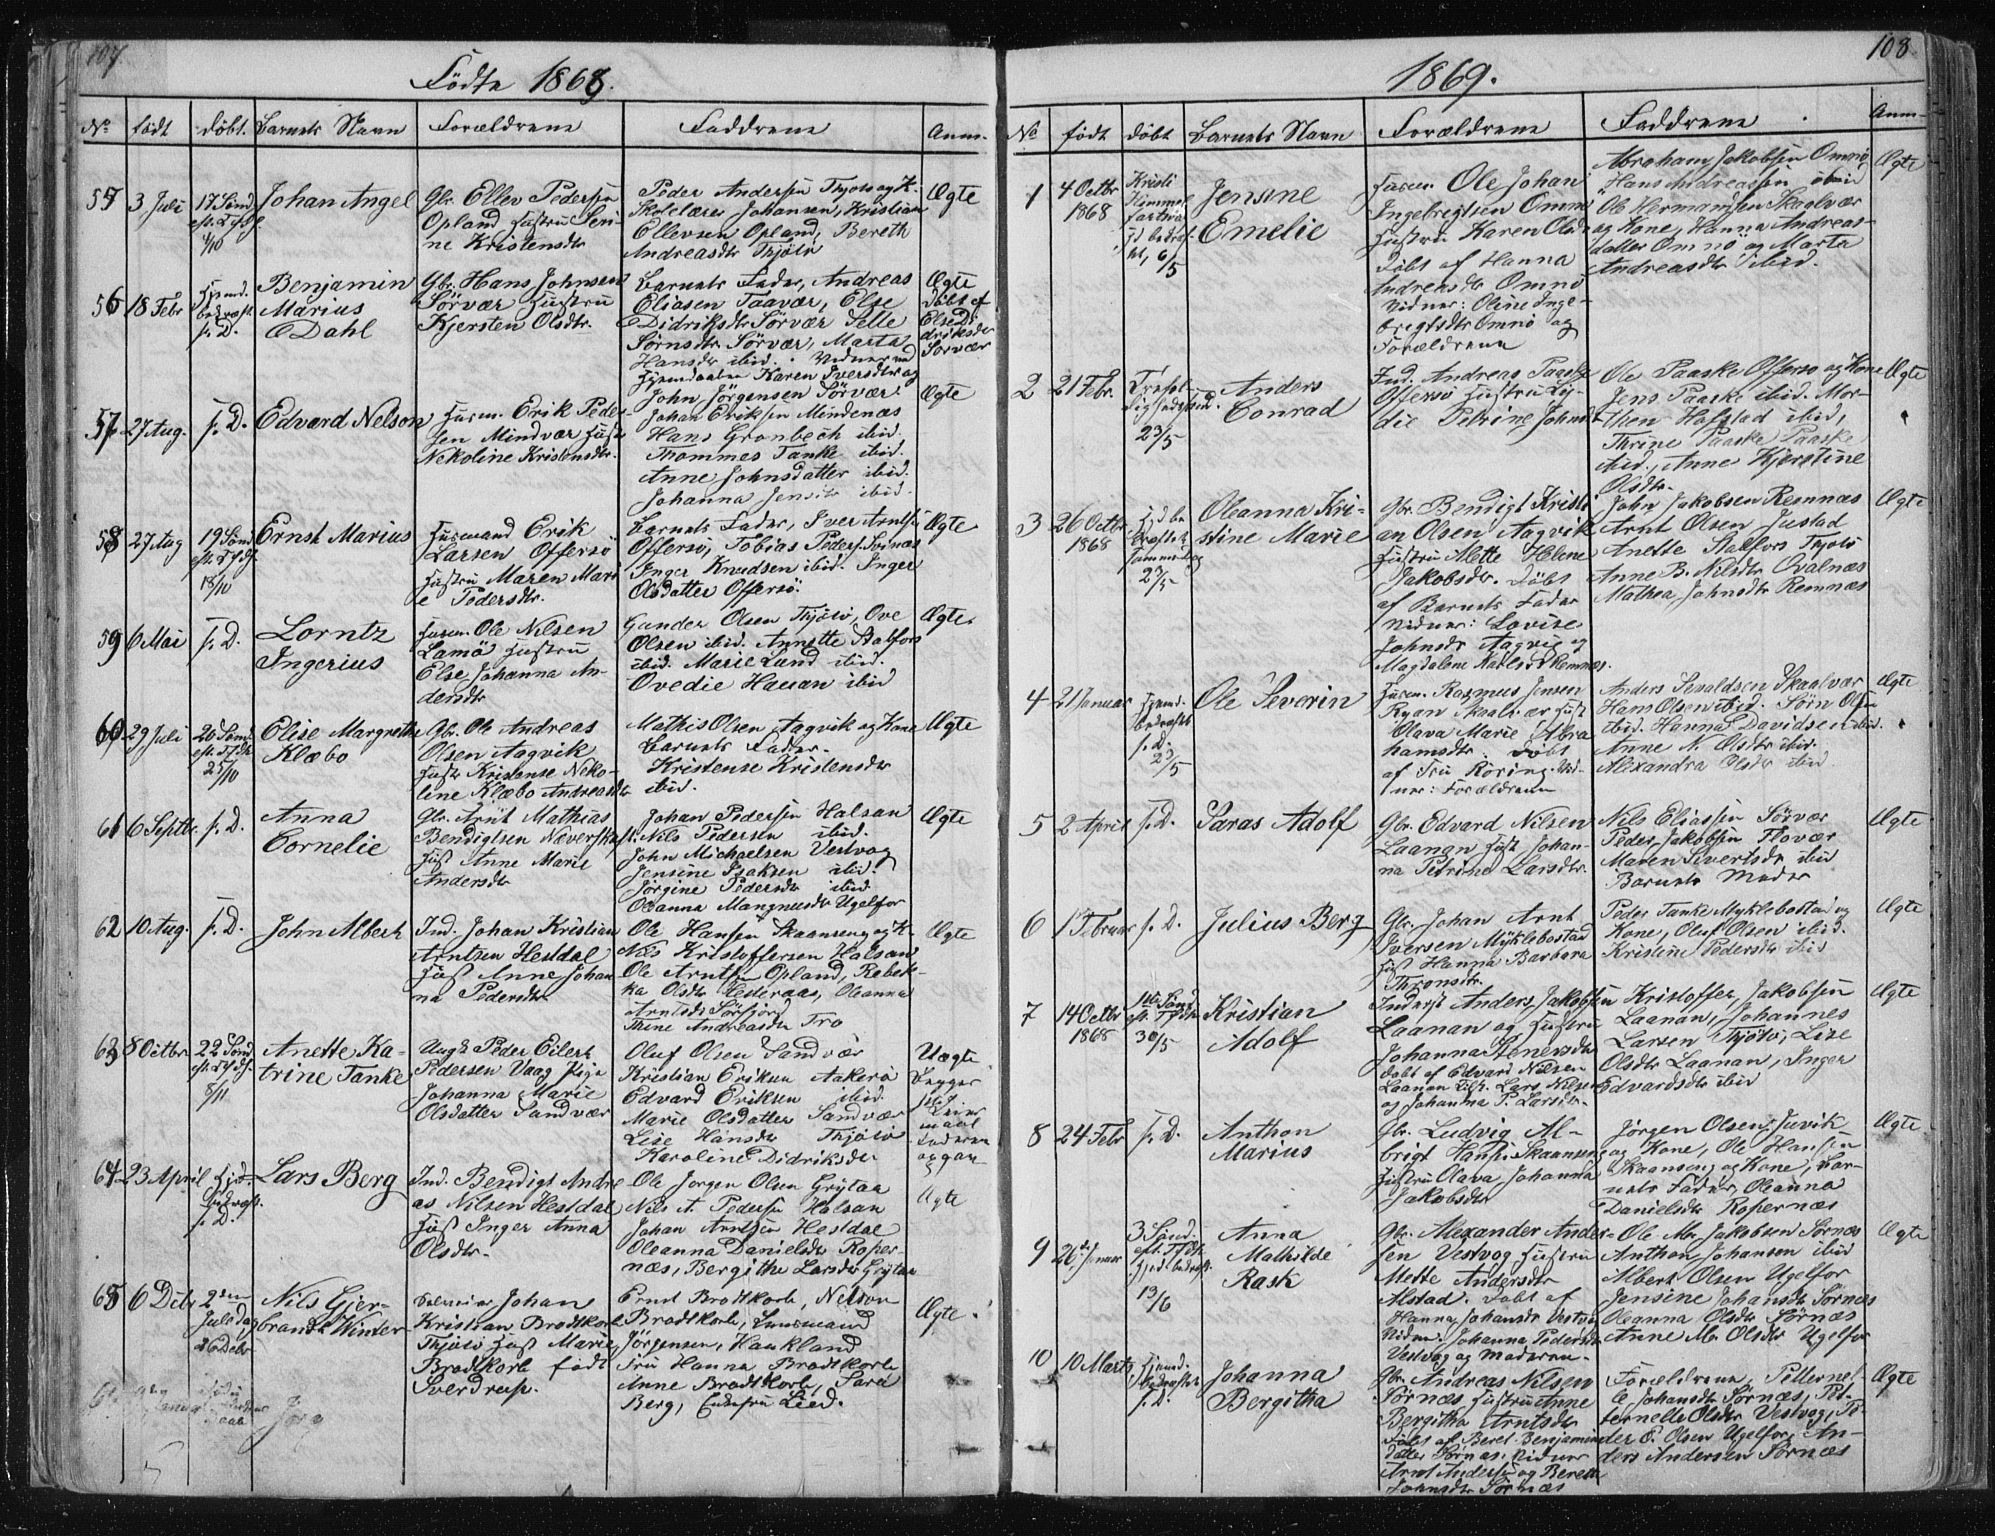 107
Födte 1868.
No födt döbt. Barnets Navn Forældrene Faddrene Anm.
55 3 Juli 17 Sönd. Johan Angel
Gbr. Ellev Pedersen
Opland Hustru Seri-
ne Kristensdtr
Peder Andersen Thjotö og K.
Skolelærer Johansen, Kristian
Ellevsen Opland, Bereth
Andreasdtr Thjötö
Ægte
56 18 Febr Hjemd.
bekræft.
s. D.
Benjamin
Marius
Dahl
Gbr. Hans Johnsen
Sörvær Hustru
Kjersten Olsdtr.
Barnets Fader, Andreas
Eliasen Taavær, Else
Didriksdtr Sörvær
Sörnsdtr Sörvær, Marta
Hansdtr ibid. Vidner ved
Hjemdaaben Karen Iversdtr og
John Jörgensen Sörvær
Ægte
Döbt af
Else Di
driksdtr
Sörvær
57 27 Aug. s. D. Edvard Nelson
Husm. Erik Peder
sen Mindvær Hustr
Nekoline Kristensdtr.
Johan Eriksen Mindenæs
Hans Gronbech ibid.
Thommes Tanke ibid.
Anne Johnsdatter ibid.
Johanna Jensdtr ibid.
Ægte
58 27 Aug 19 Sönd
18/10
Ernst Marius
Husmand Erik
Larsen Offersö
Hustru Maren Mari
e Pedersdtr.
Barnets Fader, Iver Arntsen
Offersö, Tobias Peders. Svinæs
Inger Knudsen ibid. Inger
Olsdatter Offersö.
Ægte
59 6 Mai s. D. Lorntz
Ingerius
Husm. Ole Nilsen
Lamö Hustru
Else Johanna An-
dersdtr
Gunder Olsen Thjötö, Ove
Olsen ibid. Annette Stalfors
ibid. Marie Lund ibid.
Ovedie Hauan ibid
Ægte.
60 29 Juli 20 Sönd
25/10
Elise Margrethe
Klæbo
Gbr. Ole Andreas
Olsen Aagvik
Hustr Kristense Neko-
line Klæbo Andreasdtr
Mathis Olsen Aagvik og Kone
Barnets Fader.
Kristense Kristensdtr
ibid.
Ægte
61 6 Septbr. s. D. Anna
Cornelie
Gbr. Arnt Mathias
Bendigtsen Næver
Hust Anne Marie
Andersdtr
Johan Pedersen Halsan
Nils Pedersen ibid.
John Michaelsen Vestvog
Jensine Isaksen ibid.
Jörgine Pedersdtr ibid
Oleanna Mangnusdtr Ugelfor
Ægte
62 10 Aug. s. D. John Albert
Ind. Johan Kristian
Arntzen Hestdal
Hust Anne Johan
na Pedersdtr
Ole Hansen Skaanseng og K.
Nils Kristoffersen Halsan
Ole Arntsen Opland, Rebek-
ka Olsdtr Hesteraas, Oleanna
Arntsdtr Sörfjord
Trine Andreasdtr Tro
Ægte
63 8 Octbr. 22 Sönd
8/11
Anette Ka-
trine Tanke
Ungk Peder Eilert
Pedersen Vaag Pige
Johanna Marie
Olsdatter Sandvær
Oluf Olsen Sandvær
Kristian Eriksen Aakerö
Edvard Eriksen ibid
Marie Olsdatter Sandvær
Lise Hansdtr Thjötö
Karoline Didriksdtr
Uægte
Begges
1ste
Leier
maal
Faderen
opgav
64 23 April Hjd.
bekræft.
s. D.
Lars Berg
Ind. Bendigt Andre
as Nilsen Hestdal
Hust Inger Anna
Olsdtr.
Ole Jörgen Olsen Grytaa
Nils A. Pedersen Halsan
Johan Arntsen Hestdal
Oleanna Danielsdtr Roper-
næs, Bergithe Larsdtr Grytaa
Ægte
65 6 Debr 2den
Juledag
26 Debr
Nils Gjer-
brandt Winter
Johan
Kristian Brodtkorb
Thjötö Hust Marie
Brodtkorb født
Sverdrup.
Ernst Brodtkorb, Nelson
Brodtkorb, Lensmand
Jörgensen, Haukland
Fru Hanna Brodtkorb
Anne Brodtkorb, Sara
Berg, Lied.
Ægte.
108
1869.
No födt döbt Barnets Navn Forældrene Faddrene Anm.
1 4 Octbr
1868
Kristi
Himmel
fartsd
6/5
Jensine
Emelie
Husm. Ole Johan
Ingebrigtsen Omnö
Hustru Karen Olsdtr
Döbt af Hanna
Andreasdtr Omnö
Vidner: Oline Inge-
brigtsdtr Omnö og
Forældrene
Abraham Jakobsen Omnö
Hans Andreassen ibid
Ole Hermansen Skaalvær
og Kone, Hanna Andreas-
datter Omnö og Marta
Andreasdtr ibid.
Ægte
2 21 Febr. Trefol-
dighedssönd.
23/5
Anders
Conrad
Ind. Andreas Paaske
Offersö Hustru Ly-
die Petrine Johnsdtr
Ole Paaske Offersö og Kone
Jens Paaske ibid. Mor-
ten Hofstad ibid,
Thrine Paaske Paaske
ibid., Anne Kjerstine
Olsdtr.
Ægte
3 26 Octbr
1868
23/5
Oleanna Kri-
stine Marie
Gbr. Bendigt Kristi
an Olsen Aagvik
Hustru Mette Helene
Jakobsdtr. Döbt
af Barnets Fader
Vidner: Lovise
Johnsdtr Aagvig og
Magdalena Karlsdtr Remnæs.
John Jakobsen Remnæs
Arnt Olsen Justad
Anette Stalfors Thjötö
Anne B. Nilsdtr Qvalnæs
Mathea Johnsdtr Remnæs
Ægte
4 21 Januar Hjemd.
bekræftet
s. D.
23/5
Ole Severin
Husm. Rasmus Jensen
Ryan Skaalvær Hust
Olava Marie Abra
hamsdtr. Döbt
af Fru Röring. Vid
ner: Forældrene
Anders Sevaldsen Skaalvær
Hans Olsen ibid. Sörn Olsen
ibid. Hanna Davidsen ibid.
Anne N. Olsdtr ibid.
Alexandra Olsdtr ibid
Ægte
5 2 April s. D. Saras Adolf
Gbr. Edvard Nilsen
Laanan Hust Johan-
na Petrine Larsdtr.
Nils Eliassen Sörvær
Peder Jakobsen Flovær
Maren Sivertsdtr ibid
Barnets Moder
Ægte
6 1 Februar s. D. Julius Berg
Gbr. Johan Arnt
Iversen Myklebostad
Hust Hanna Barbara
Thronsdtr.
Peder Tanke Myklebostad og
Kone, Oluf Olsen ibid.
Kristine Pedersdtr ibid
Ægte
7 14 Octbr
1868
30/5
Kristian
Adolf
Inderst Anders Jakobsen
Laanan og Hustru
Johanna Stenersdtr
Döbt af Edvard Nilsen
Laanan Lars Nilsen
og Johanna P. Larsdtr.
Kristoffer Jakobsen
Laanan, Johannes
Larsen Thjötö, Lise
Olsdtr Laanan, Inger
Edvardsdtr ibid
Ægte
8 24 Febr s. D. Anthon
Marius
Gbr. Ludvig Al-
brigt Hans. Skaanseng
Hustru Olava Johanna
Jakobsdtr
Jörgen Olsen Juvik
og Kone, Ole Hansen
Skaanseng og Kone, Bar-
nets Fader, Oleanna
Danielsdtr Ropernæs
Ægte
9 26de Januar 3 Sönd.
13/6
Anna
Mathilde
Rask
Gbr. Alexander Ander-
sen Vestvog Hustru
Mette Andersdtr
Alstad. Döbt af
Hanna Johansdtr Vestvog
Vidn. Johanna Pedersdtr
Vestvog og Moderen.
Ole Mr. Jakobsen Sörnæs
Anthon Johansen ibid
Albert Olsen Ugelfor
Jensine Johansdtr Sörnæs
Oleanna Olsdtr Sörnæs
Anne M. Olsdtr Ugelfor
Ægte
10 10 Marts Hjemd.
bekræftet
s. D.
Johanna
Bergitha
Gbr. Andreas Nilsen
Sörnæs Hustru Anne
Bergitha Arntsdtr
Döbt af Beret Benjamin
datter Sörnæs. Vidner
Arnt Andersen og Bereth
Johnsdtr Sörnæs
Forældrene, Petternel-
le Johansdtr Sörnæs, Pet-
ternelle Olsdtr Vestvog, Pe-
der E. Olsen Ugelfor, An-
ders Andersen Sörnæs
Ægte